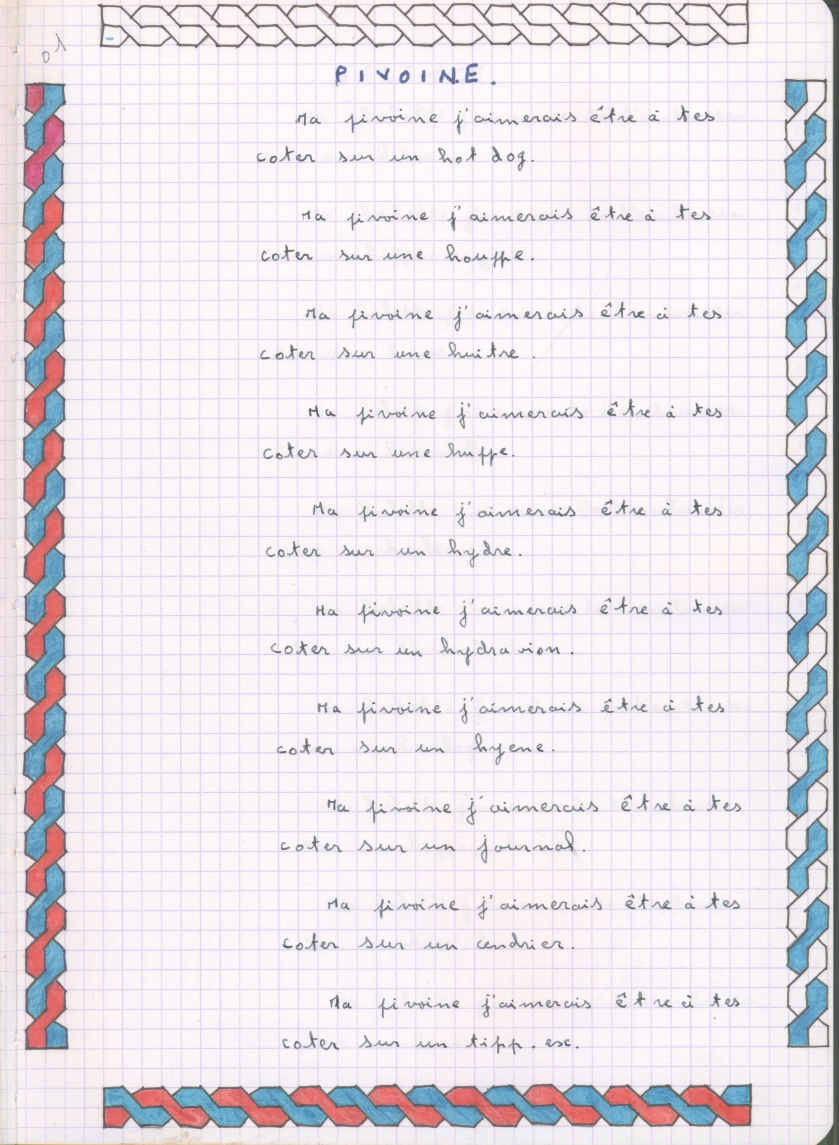 01
PIVOINE.
Ma pivoine j'aimerais être à tes
coter sur un hot dog.
Ma pivoine j'aimerais être à tes
coter sur une houppe.
Ma pivoine j'aimerais être à tes
coter sur une huitre.
Ma pivoine j'aimerais être à tes
coter sur une huppe.
Ma pivoine j'aimerais être à tes
coter sur un hydre.
Ma pivoine j'aimerais être à tes
coter sur un hydravion.
Ma pivoine j'aimerais être à tes
coter sur un hyene.
Ma pivoine j'aimerais être à tes
coter sur un journal.
Ma pivoine j'aimerais être à tes
coter sur un cendrier.
Ma pivoine j'aimerais être à tes
coter sur un tipp.esc.